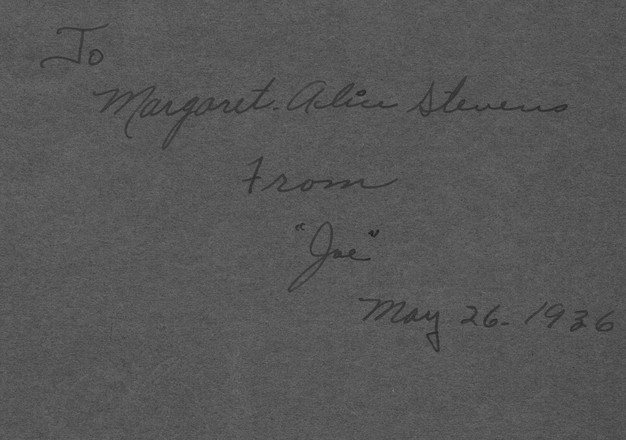 To
Margaret. Alice Stevens
From
"Joe"
May 26- 1936